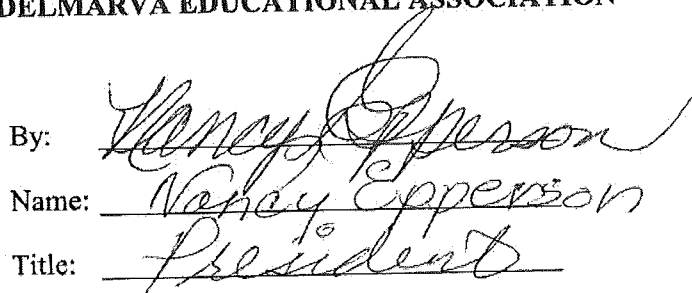 DELMARVA EDUCATIONAL ASSOCIATION
By: Nancy Epperson
Name: Nancy Epperson
Title: President